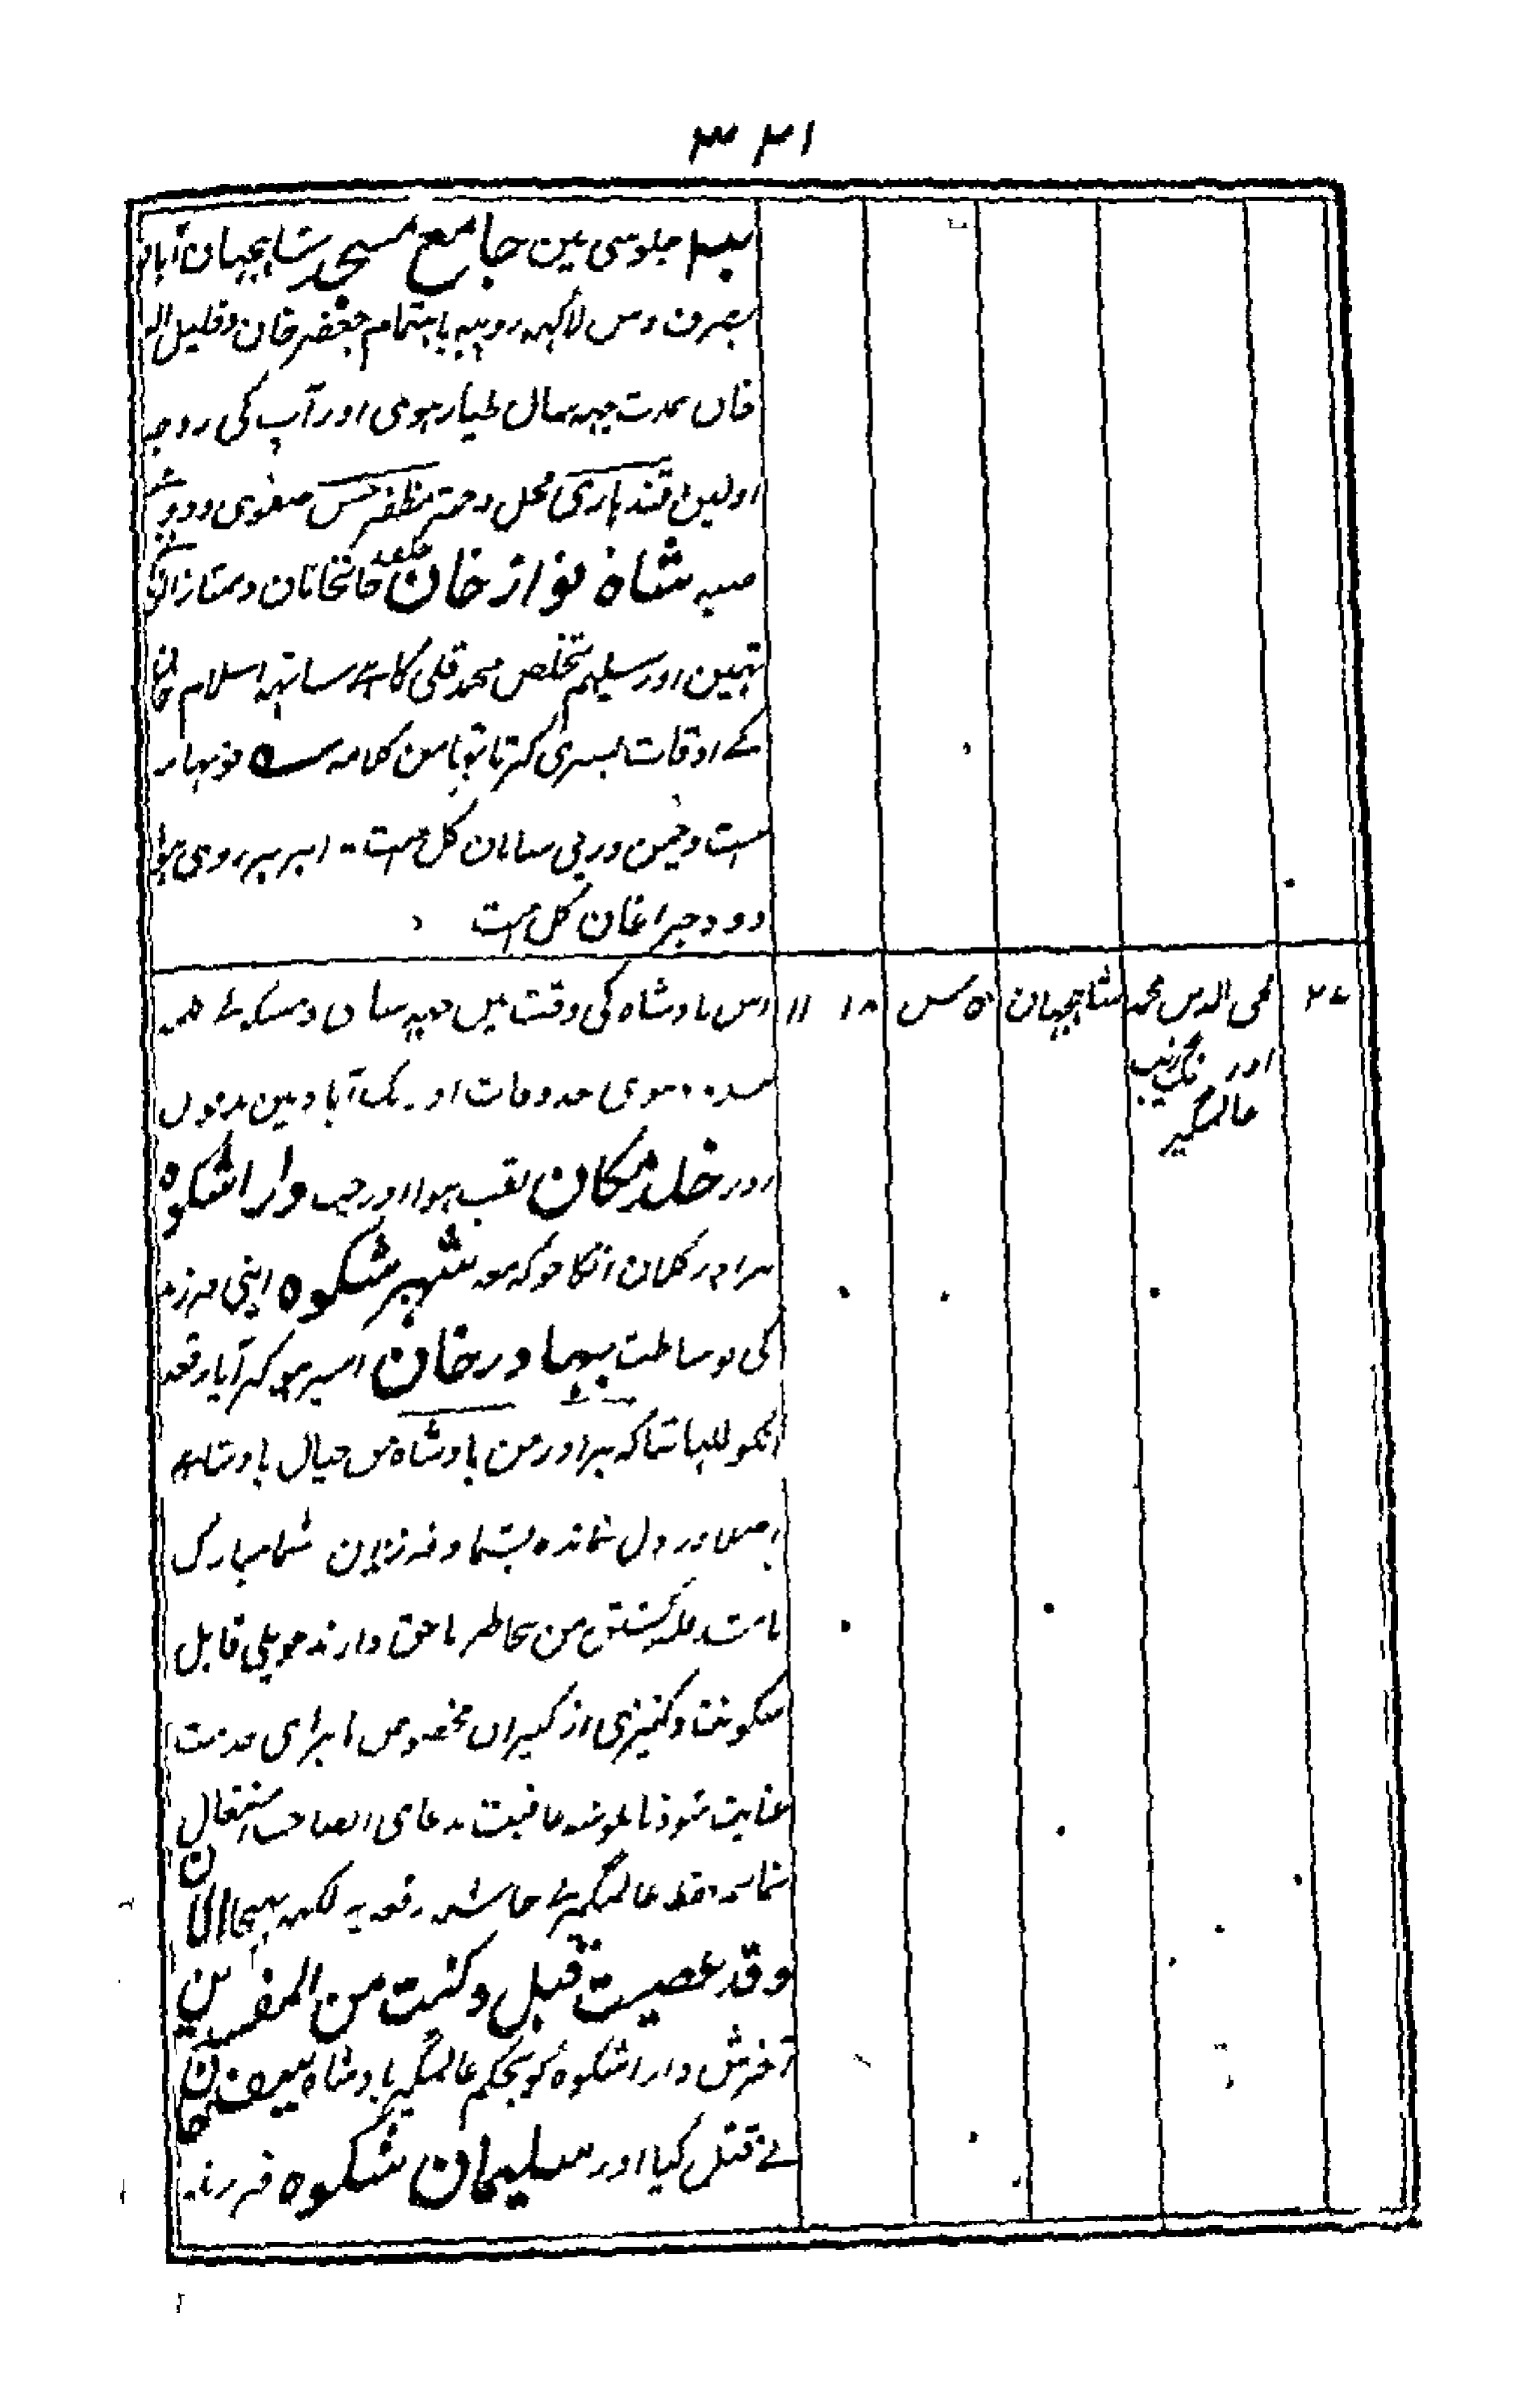 ۳۲۱
جلوسی مین جامع مسجد شاہجہان آباد
بصرف دس لاکہہ روپیہ باہتمام جعفر خان و خلیل اللہ
خان بمدت چہہ سال طیار ہوی اور آپ کی زوجہ
اولین قندہاری محل دختر مظفر حسین صفوی و دوئم
صبیہ شاہ نواز خان خلف خانخانان و ممتاز الزمانی
تہین اور سلیم تخلص محمد قلی کا ہے ساتہہ اسلام خان
کے اوقات بسری کرتا تہا من کلامہ نوبہار
است و چمن در پی سامان گل است - ابر بر روی ہوا
دود چراغان گل است
۲۷ محی الدین محمد شاہجہان ۵ س ۱۸ ۱۱ اس بادشاہ کی وقت میں
اورنگ زیب
عالمگیر
اورنگ آباد مین مدفون
اور خلد مکان لقب ہوا اور جب دارا شکوہ
برادر کلان انکا جو کہ معہ شہر شکوہ اپنی فرزند
کی بوساطت بہادر خان اسیر ہو کر آیا رقعہ
انکو لکہا تہا کہ برادر من بادشاہ من خیال بادشاہی
اصلا در دل نماندہ بشما و فرزندان شما مبارک
باشد کشتن من بخاطر ناحق دارند حویلی قابل
سکونت و کنیزی از کنیزان مخصوص ما برای خدمت
عنایت شود تا بگوشہ عافیت بدعای آنصاحب اشتغال
نمایم فقط عالمگیر نے حاشیہ رقعہ پہ لکہہ بہیجا الآن
وقد عصیت قبل وکنت من المفسدین
آخرش دارا شکوہ کو بحکم عالمگیر بادشاہ سیف خان
نے قتل کیا اور سلیمان شکوہ فرزند